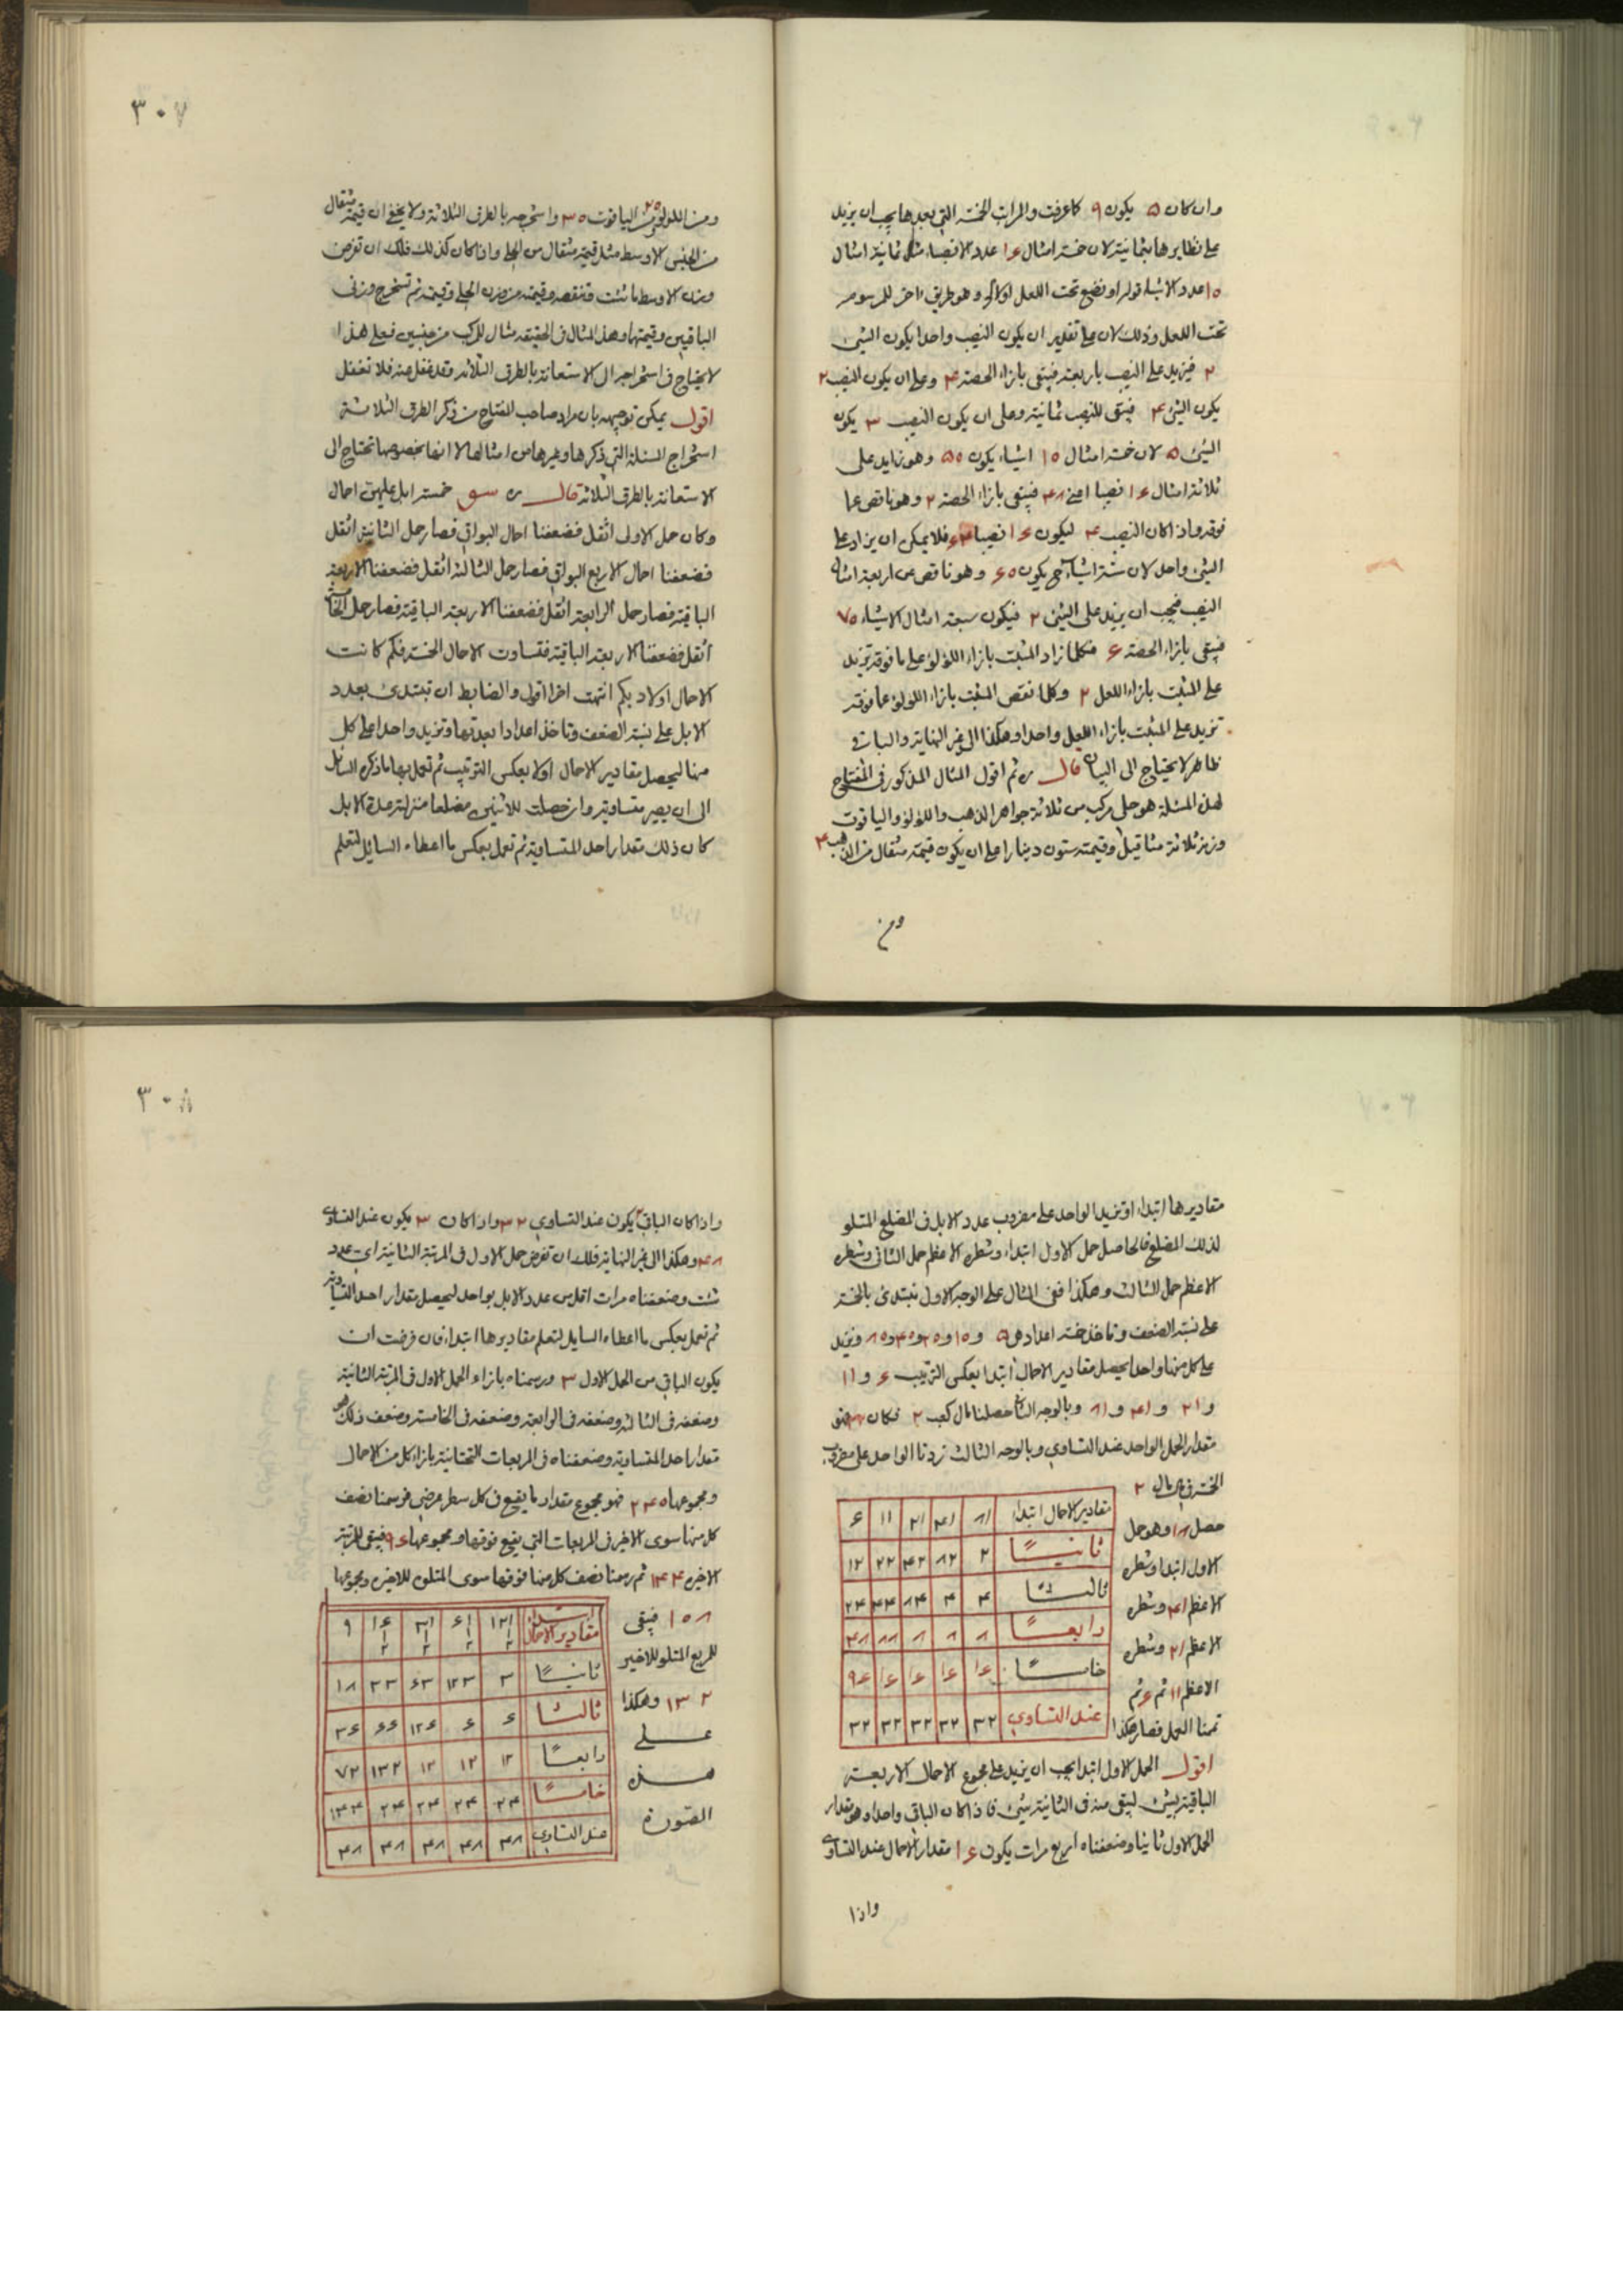 وان كان ۵ يكون ۹ كما عرفت والمراتب الخمسة التى بعدها يجب ان يزيد
على نظايرها بثمانية لان خمسة امثال ۱۶ عدد الانصباء مثل ثمانية امثال
۱۰ عدد الاشياء قوله او نضع تحت اللعل اولا وهو طريق اخر للرسوم
تحت اللعل وذلك لان على تقدير ان يكون النصيب واحدا يكون الشئ
۲ فيزيد على النصيب باربعة فيبقى بازاء الحصة ۴ وعلى ان يكون النصيب ۲
يكون الشئ ۴ فيبقى للنصيب ثمانية وعلى ان يكون النصيب ۳ يكون
الشئ ۵ لان خمسة امثال ۱۰ اشياء يكون ۵۰ وهو زايد على
ثلاثة امثال ۱۶ نصيبا اعنى ۴۸ فيبقى بازاء الحصة ۲ وهو ناقص عما
فوقه واذا كان النصيب ۴ ليكون ۱۶ نصيبا ۶۴ فلا يمكن ان يزاد على
الشئ واحد لان ستة اشياء يكون ۶۰ وهو ناقص عن اربعة امثال
النصيب فيجب ان يزيد على الشئ ۲ فيكون سبعة امثال الاشياء ۷۰
فيبقى بازاء الحصة ۶ فكلما زاد المثبت بازاء اللؤلؤ على ما فوقه تزيد
على المثبت بازاء اللعل ۲ وكلما نقص المثبت بازاء اللؤلؤ عما فوقه
تزيد على المثبت بازاء اللعل واحدا وهكذا الى غير النهاية والباقى
ظاهر لا يحتاج الى البيان قال ره ثم اقول المثال المذكور فى المفتاح
لهذه المسئلة هو حلى مركب من ثلاثة جواهر الذهب واللؤلؤ والياقوت
وزنه ثلاثة مثاقيل وقيمته ستون دينارا على ان يكون قيمة مثقال من الذهب ۴
ومن
۳۰۷
ومن اللؤلؤ ۲۰ ومن الياقوت ۳۵ واستخرجه بالطرق الثلاثة ولا يخفى ان قيمة مثقال
من الجنس الاوسط مثل قيمة مثقال من الحلى واذا كان كذلك فلك ان تفرض
وزن الاوسط ما شئت وتنقصه وقيمته من وزن الحلى وقيمته ثم تستخرج وزنى
الباقيين وقيمتهما وهذا المثال فى الحقيقة مثال المركب من جنسين فعلى هذا
لا يحتاج فى استخراجه الى الاستعانة بالطرق الثلاثة وقد غفل عنه فلا تغفل
اقول يمكن توجيهه بان مراد صاحب المفتاح من ذكر الطرق الثلاثة
استخراج المسئلة التى ذكرها وغيرها من امثالها لا انها بخصوصها تحتاج الى
الاستعانة بالطرق الثلاثة قال ره سو خمسة ابل عليهن احمال
وكان حمل الاولى اثقل فضعفنا احمال البواقى فصار حمل الثانية اثقل
فضعفنا احمال الاربع البواقى فصار حمل الثالثة اثقل فضعفنا الاربعة
الباقية فصار حمل الرابعة اثقل فضعفنا الاربعة الباقية فصار حمل الخامسة
اثقل فضعفنا الاربعة الباقية فتساوت الاحمال الخمسة فكم كانت
الاحمال اولا وبكم انتهت اخرا اقول والضابط ان تبتدئ بعدد
الابل على نسبة الضعف وتاخذ اعدادا بعدتها وتزيد واحدا على كل
منها ليحصل مقادير الاحمال اولا بعكس الترتيب ثم تعمل بها ما ذكره السايل
الى ان يصير متساوية وان حصلت للاثنين مضلعا منزلته عدة الابل
كان ذلك مقدار احد المتساوية ثم تعمل بعكس ما اعطاه السايل لتعلم
مقاديرها ابتداء او تزيد الواحد على مضروب عدد الابل فى المضلع المتلو
لذلك المضلع فالحاصل حمل الاول ابتداء وشطره الاعظم حمل الثانى وشطره
الاعظم حمل الثالث وهكذا ففى المثال على الوجه الاول نبتدئ بالخمسة
على نسبة الضعف وناخذ خمسة اعداد هى ۵ و۱۰ و۲۰ و۴۰ و۸۰ ونزيد
على كل منها واحدا يحصل مقادير الاحمال ابتداء بعكس الترتيب ۶ و۱۱
و۲۱ و۴۱ و۸۱ وبالوجه الثانى حصلنا مال كعب ۲ فكان ۳۲ فهو
مقدار الحمل الواحد عند التساوى وبالوجه الثالث زدنا الواحد على مضروب
الخمسة فى مال مال ۲
حصل ۸۱ وهو حمل
الاول ابتداء وشطره
الاعظم ۴۱ وشطره
الاعظم ۲۱ وشطره
الاعظم ۱۱ ثم ۶ ثم
تممنا العمل فصار هكذا
مقادير الاحمال ابتداء ۸۱ ۴۱ ۲۱ ۱۱ ۶
ثانيًا ۲ ۸۲ ۴۲ ۲۲ ۱۲
ثالثًا ۴ ۴ ۸۴ ۴۴ ۲۴
رابعًا ۸ ۸ ۸ ۸۸ ۴۸
خامسًا ۱۶ ۱۶ ۱۶ ۱۶ ۹۶
عند التساوى ۳۲ ۳۲ ۳۲ ۳۲ ۳۲
اقول الحمل الاول ابتداء يجب ان يزيد على مجموع الاحمال الاربعة
الباقية بشئ ليبقى منه فى الثانية شئ فاذا كان الباقى واحدا وهو مقدار
الحمل الاول ثانيا وضعفناه اربع مرات يكون ۱۶ مقدار الاحمال عند التساوى
واذا
۳۰۸
واذا كان الباقى ۲ يكون عند التساوى ۳۲ واذا كان ۳ يكون عند التساوى
۴۸ وهكذا الى غير النهاية فلك ان تفرض حمل الاول فى المرتبة الثانية اى عدد
شئت وضعفناه مرات اقل من عدد الابل بواحد ليحصل مقدار احد المتساوية
ثم نعمل بعكس ما اعطاه السايل لتعلم مقاديرها ابتداء فان فرضت ان
يكون الباقى من الحمل الاول ۳ ورسمناه بازاء الحمل الاول فى المرتبة الثانية
وضعفه فى الثالثة وضعفه فى الرابعة وضعفه فى الخامسة وضعف ذلك هو
مقدار احد المتساوية وضعفناه فى المربعات التحتانية بازاء كل من الاحمال
ومجموعها ۲۴۰ فهو مجموع مقدار ما يقع فى كل سطر عرضى فرسمنا نصف
كل منها سوى الاخير فى المربعات التى يقع فوقها ومجموعها ۹۶ فيبقى للمرتبة
الاخيرة ۱۴۴ ثم رسمنا نصف كل منها فوقها سوى المتلوة للاخيرة ومجموعها
۱۰۸ فيبقى
للمربع المتلو للاخير
۱۳۲ وهكذا
على
هذه
الصورة
مقادير الاحمال ابتداء ۱۲۱ ۱/۲ ۶۱ ۱/۲ ۳۱ ۱/۲ ۱۶ ۱/۲ ۹
ثانيًا ۳ ۱۲۳ ۶۳ ۳۳ ۱۸
ثالثًا ۶ ۶ ۱۲۶ ۶۶ ۳۶
رابعًا ۱۲ ۱۲ ۱۲ ۱۳۲ ۷۲
خامسًا ۲۴ ۲۴ ۲۴ ۲۴ ۱۴۴
عند التساوى ۴۸ ۴۸ ۴۸ ۴۸ ۴۸